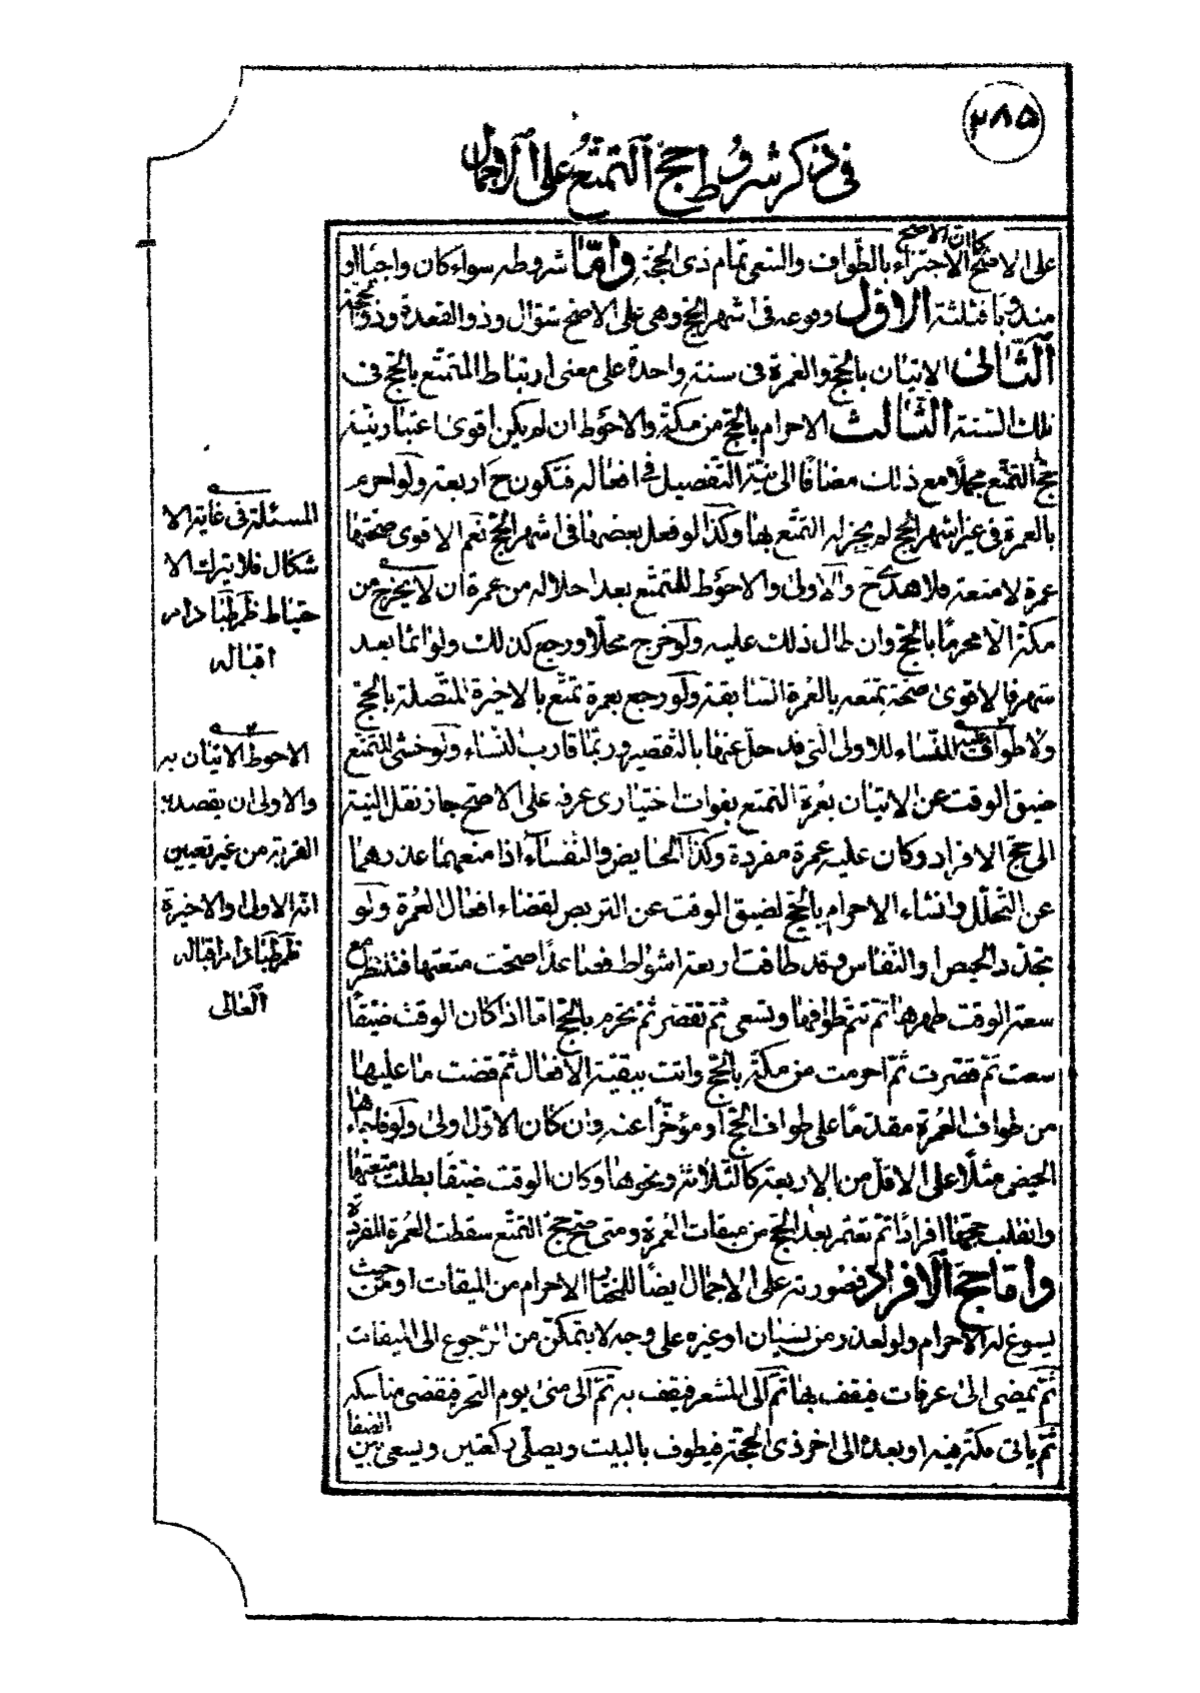 ٢٨٥
فى ذكر شروط حج التمتع على الاجمال
كما ان الاصح
على الاصح الاجتزاء بالطواف والسعى تمام ذى الحجة وامّا شروطه سواء كان واجبا او
مندوبا فثلثة الاول وقوعه فى اشهر الحج وهى على الاصح شوّال وذو القعدة وذو الحجة
الثّانى الاتيان بالحج والعمرة فى سنة واحدة على معنى ارتباط المتمتّع بالحج فى
تلك السّنة الثّالث الاحرام بالحج من مكّة والاحوط ان لم يكن اقوى اعتبار نيّة
حجّ التمتّع مجملًا مع ذلك مضافًا الى نيّة التّفصيل فى افعاله فتكون ح اربعة ولو احرم
بالعمرة فى غير اشهر الحج لم يجز له التمتّع بها وكذا لو فعل بعضها فى اشهر الحج نعم الاقوى صحّتها
عمرة لا متعة فلا هدى ح والاولى والاحوط للمتمتّع بعد احلاله من عمرة ان لا يخرج من
مكّة الّا محرمًا بالحجّ وان طال ذلك عليه ولو خرج محلّا ورجع كذلك ولو انّما بعد
شهر فالاقوى صحّة تمتّعه بالعمرة السّابقة ولو رجع بعمرة تمتّع بالاخيرة المتّصلة بالحج
ولا طواف عليه للنّساء للاولى الّتى قد حلّ عنها بالتقصير وربّما قارب للنّساء ولو خشى المتمتّع
ضيق الوقت عن الاتيان بعمرة التمتع بفوات اختيارى عرفة على الاصح جاز نقل النية
الى حجّ الافراد وكان عليه عمرة مفردة وكذا الحايض والنفساء اذا منعهما عذرهما
عن التحلّل وانشاء الاحرام بالحجّ لضيق الوقت عن التربص لقضاء افعال العمرة ولو
تجدّد الحيض او النّفاس وقد طافت اربعة اشواط فصاعدًا صحّت متعتها فتنتظر مع
سعة الوقت طهرها ثم تتمّ طوافها وتسعى ثمّ تقصّر ثمّ تحرم بالحجّ امّا اذا كان الوقت ضيّقًا
سعت ثمّ قصّرت ثمّ احرمت من مكّة بالحجّ واتت ببقيّة الافعال ثمّ قضت ما عليها
من طواف العمرة مقدّمًا على طواف الحجّ او مؤخّرًا عنه وان كان الاوّل اولى ولو فاجاءها
الحيض مثلًا على الاقلّ من الاربعة كالثّلاثة ونحوها وكان الوقت ضيّقًا بطلت متعتها
وانقلب حجّها افرادًا ثمّ تعتمر بعد الحجّ من ميقات العمرة ومتى صحّ حجّ التمتّع سقطت العمرة المفردة
وامّا حجّ الافراد فصورته على الاجمال ايضًا للمختار الاحرام من الميقات او من حيث
يسوغ له الاحرام ولو لعذر من نسيان او غيره على وجه لا يتمكّن من الرّجوع الى الميقات
ثمّ يمضى الى عرفات فيقف بها ثمّ الى المشعر فيقف به ثمّ الى منى يوم النّحر فيقضى مناسكه
ثمّ ياتى مكّة فيه او بعده الى اخر ذى الحجّة فيطوف بالبيت ويصلّى ركعتين ويسعى بين الصّفا
المسئلة فى غاية الا
شكال فلا يترك الا
حتياط ظم طبا دام
اقباله
الاحوط الاتيان به
والاولى ان يقصد به
القربة من غير تعيين
انّه الاولى او الاخيرة
ظم طبا دام اقباله
العالى